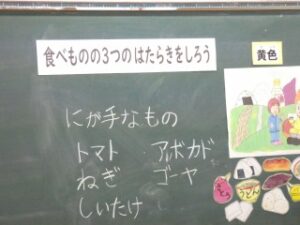 食べものの3つのはたらきをしろう
黄色
にが手なもの
トマト アボカド
ねぎ ゴーヤ
しいたけ
さとう
うどん